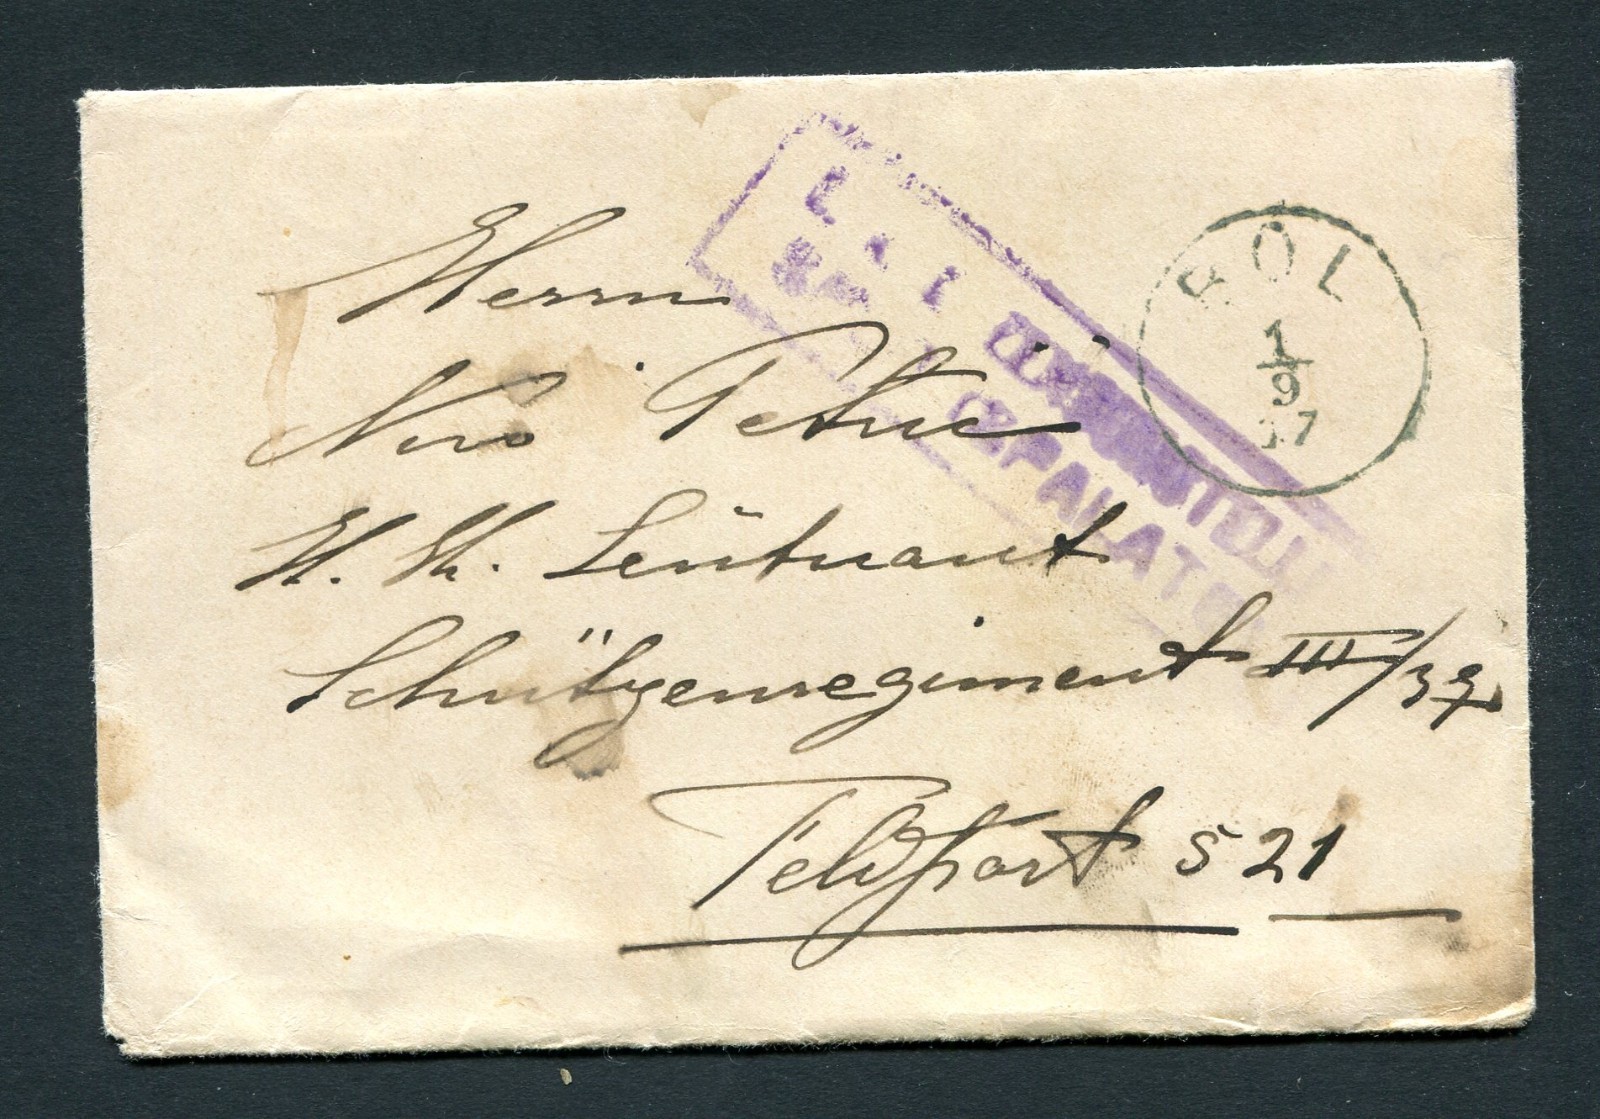 Herrn
Nino Petrić
K. K. Leutnant
Schützenregiment III/37
Feldpost 521
BOL
1/9
17